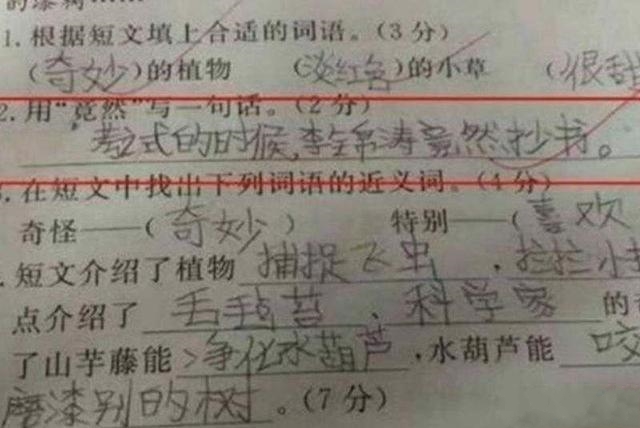 的瀑
1.根据短文填上合适的词语。(3分)
(奇妙)的植物 (淡红色)的小草 (很甜
2.用“竟然”写一句话。(2分)
考式的时候,李锦涛竟然抄书。
.在短文中找出下列词语的近义词。(4分)
奇怪——(奇妙) 特别——(喜欢
.短文介绍了植物捕捉飞虫,拦拦小
点介绍了毛毡苔、科学家的
了山芋藤能净化水葫芦,水葫芦能咬
磨漆别的树。(7分)